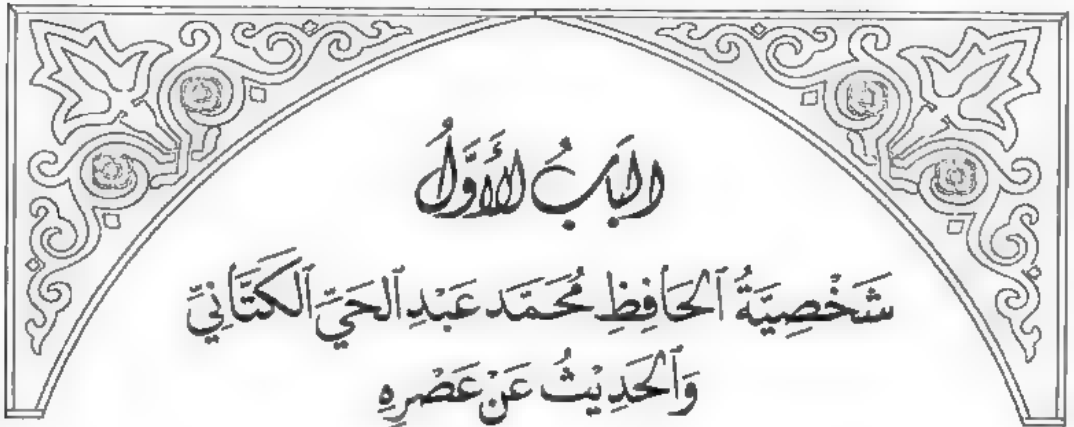 البَابُ الأَوَّلُ
شَخْصِيَّةُ ٱلْحَافِظِ مُحَمَّد عَبْدِ ٱلْحَيِّ ٱلْكَتَّانِيِّ
وَٱلْحَدِيْثُ عَنْ عَصْرِهِ